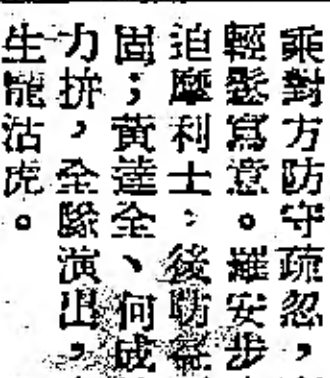 乘對方防守疏忽，
輕鬆寫意。羅安步
迫摩利士；後防鞏
固；黃達全、何成
力拼，全隊演出，
生龍活虎。